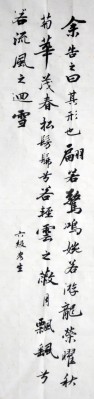 余告之曰其形也翩若驚鴻婉若游龍榮耀秋
菊華茂春松髣髴兮若輕雲之蔽月飄颻兮
若流風之迴雪
六級考生